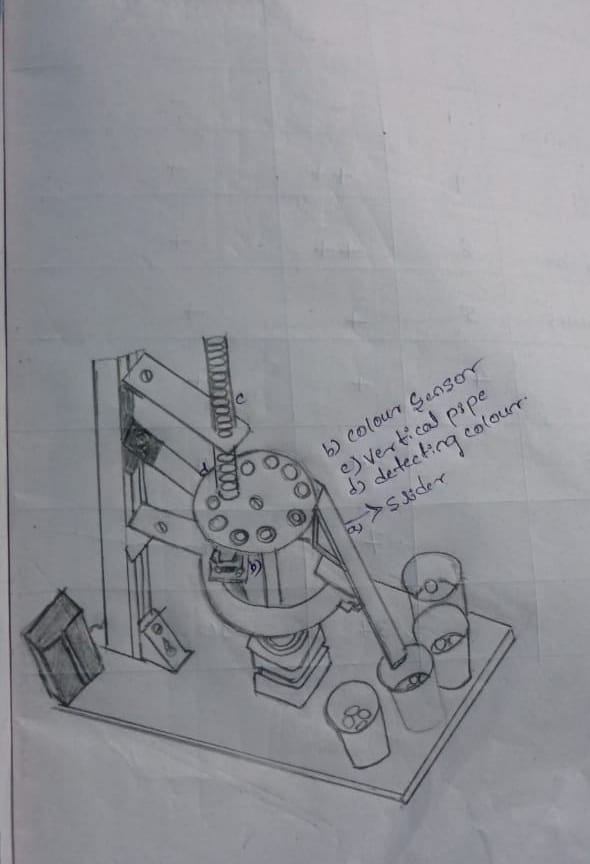 c
d
b) colour sensor
c) vertical pipe
d) detecting colour.
a) > Slider
b)